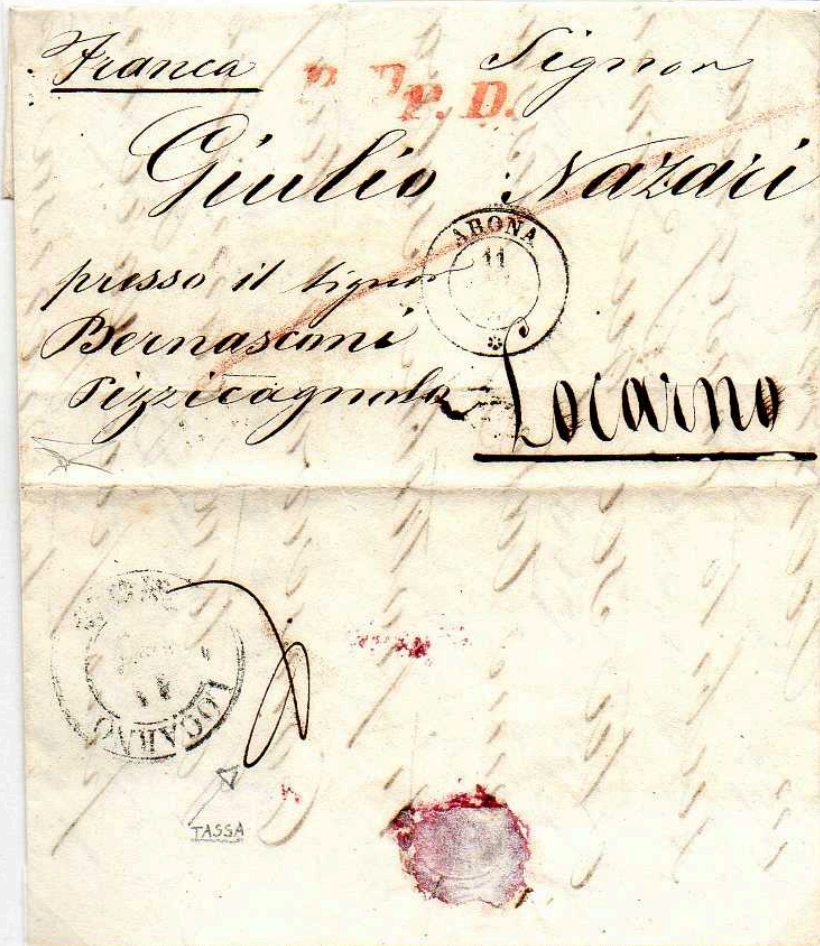 Franca
P. D. P. D.
Signor
Giulio Nazari
ARONA
11
presso il Signor
Bernasconi
Pizzicagnolo
Locarno
LOCARNO
11
TASSA